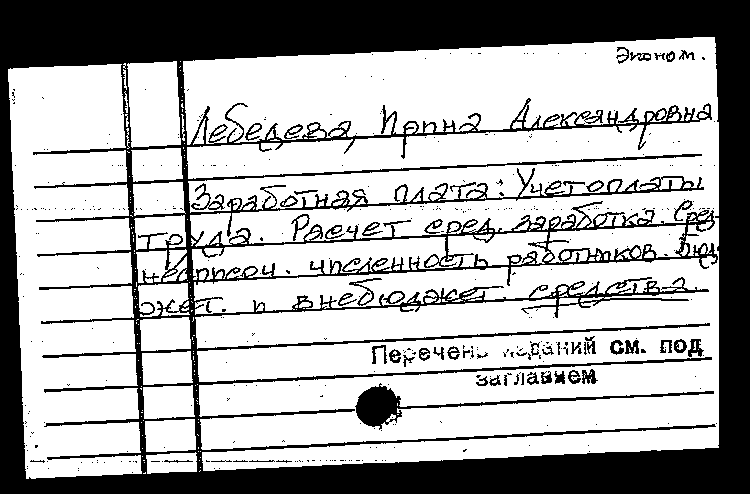 Эконом.
Лебедева, Ирина Александровна
Заработная плата: Учет оплаты
труда. Расчет сред. заработка. Сред-
несписоч. численность работников. Бюд-
жет. и внебюджет. средства.
Перечень изданий см. под
заглавием